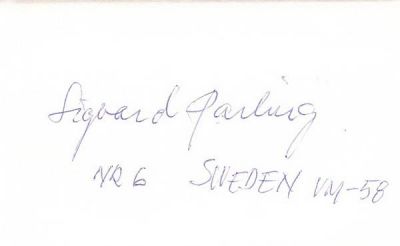 Sigvard Parling
NR 6 SWEDEN VM-58